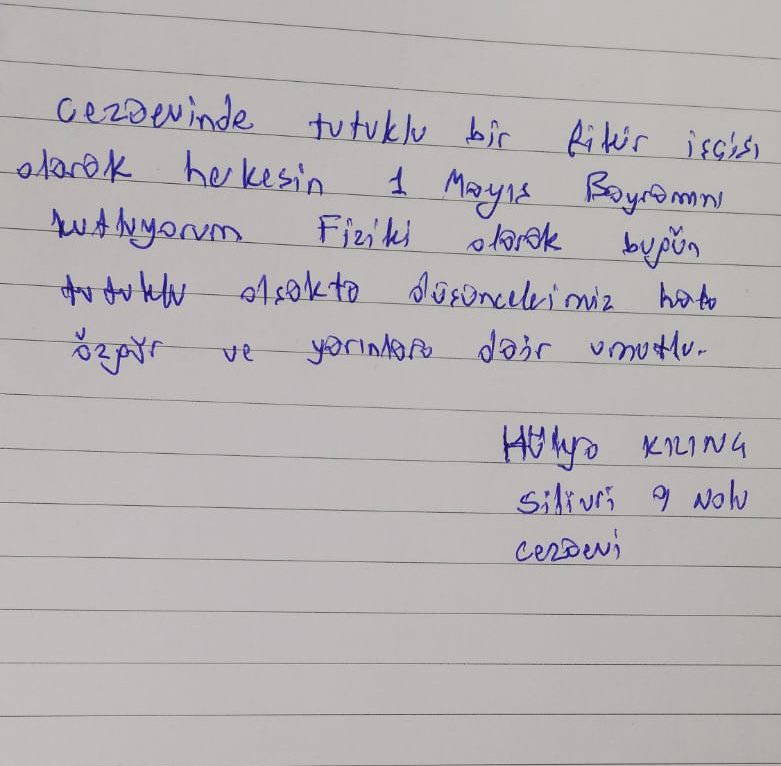 cezaevinde tutuklu bir fikir işçisi
olarak herkesin 1 Mayıs Bayramını
kutluyorum Fiziki olarak bugün
tutuklu olsakta düşüncelerimiz hala
özgür ve yarınlara dair umutlu.
Hülya KILINÇ
Silivri 9 Nolu
cezaevi